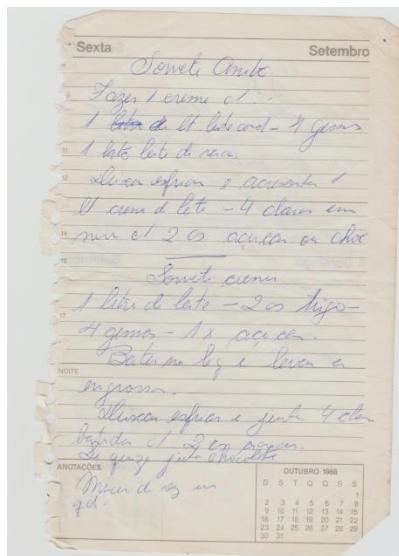 Sexta Setembro
Sorvete
Fazer 1 creme c/.
1 lt leite cond - 4 gemas
1 lata leite de vaca.
Deixar esfriar e acrescentar 1
lt creme d leite - 4 claras em
neve c/ 2 cs açucar ou choc
Sorvete creme
1 litro de leite - 2 cs trigo -
4 gemas - 1 x açucar.
Bater no liq e levar a
engrossar.
Deixar esfriar e juntar 4 claras
batidas c/ 2 cs açucar.
Se quizer juntar chocolate
11
12
14
15
17
NOITE
ANOTAÇÕES
OUTUBRO 1986
D S T Q Q S S
1
2 3 4 5 6 7 8
9 10 11 12 13 14 15
16 17 18 19 20 21 22
23 24 25 26 27 28 29
30 31